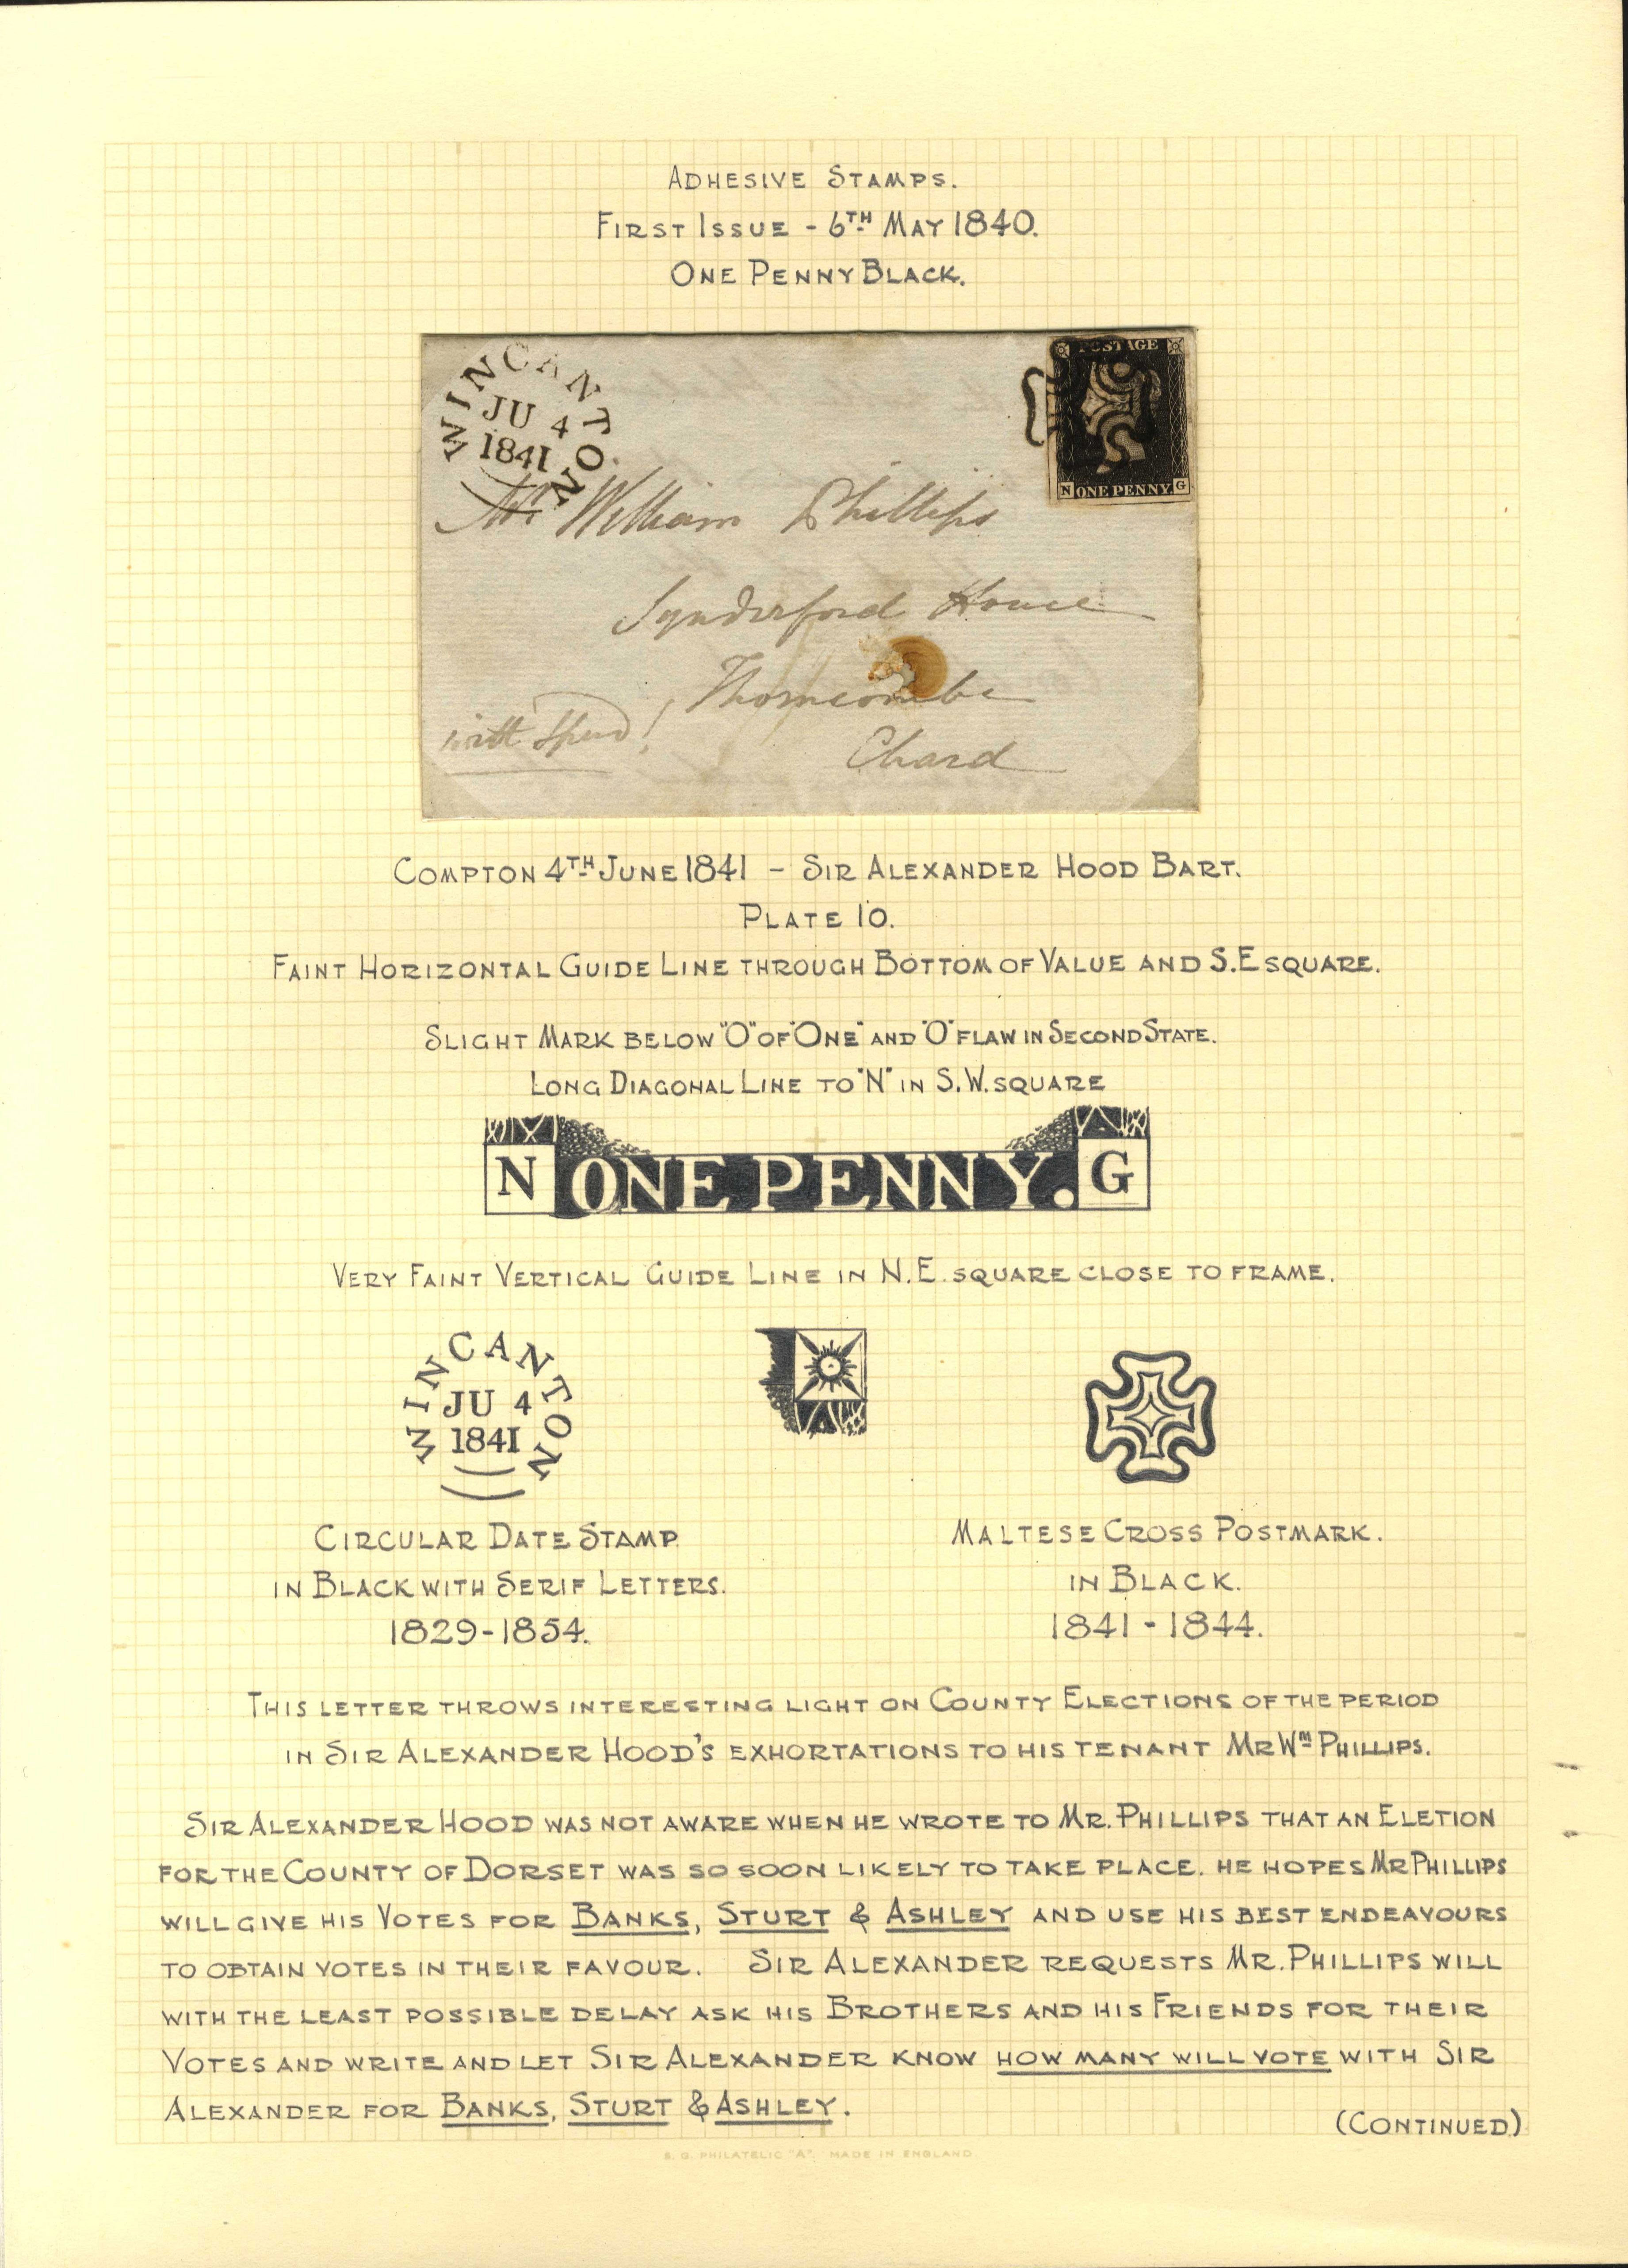 ADHESIVE STAMPS.
FIRST ISSUE - 6TH MAY 1840.
ONE PENNY BLACK.
WINCANTON
JU 4
1841
POSTAGE
N ONE PENNY. G
Mr William Phillips
Synderford House
Thorncombe
with Speed!
Chard
COMPTON 4TH JUNE 1841 - SIR ALEXANDER HOOD BART.
PLATE 10.
FAINT HORIZONTAL GUIDE LINE THROUGH BOTTOM OF VALUE AND S.E SQUARE.
SLIGHT MARK BELOW "O" OF "ONE" AND "O" FLAW IN SECOND STATE.
LONG DIAGONAL LINE TO "N" IN S.W. SQUARE
N ONE PENNY. G
VERY FAINT VERTICAL GUIDE LINE IN N.E. SQUARE CLOSE TO FRAME.
WINCANTON
JU 4
1841
CIRCULAR DATE STAMP
IN BLACK WITH SERIF LETTERS.
1829-1854.
MALTESE CROSS POSTMARK.
IN BLACK.
1841-1844.
THIS LETTER THROWS INTERESTING LIGHT ON COUNTY ELECTIONS OF THE PERIOD
IN SIR ALEXANDER HOOD'S EXHORTATIONS TO HIS TENANT MR WM PHILLIPS.
SIR ALEXANDER HOOD WAS NOT AWARE WHEN HE WROTE TO MR. PHILLIPS THAT AN ELETION
FOR THE COUNTY OF DORSET WAS SO SOON LIKELY TO TAKE PLACE. HE HOPES MR PHILLIPS
WILL GIVE HIS VOTES FOR BANKS, STURT & ASHLEY AND USE HIS BEST ENDEAVOURS
TO OBTAIN VOTES IN THEIR FAVOUR. SIR ALEXANDER REQUESTS MR. PHILLIPS WILL
WITH THE LEAST POSSIBLE DELAY ASK HIS BROTHERS AND HIS FRIENDS FOR THEIR
VOTES AND WRITE AND LET SIR ALEXANDER KNOW HOW MANY WILL VOTE WITH SIR
ALEXANDER FOR BANKS, STURT & ASHLEY.
(CONTINUED)
S. G. PHILATELIC "A". MADE IN ENGLAND.